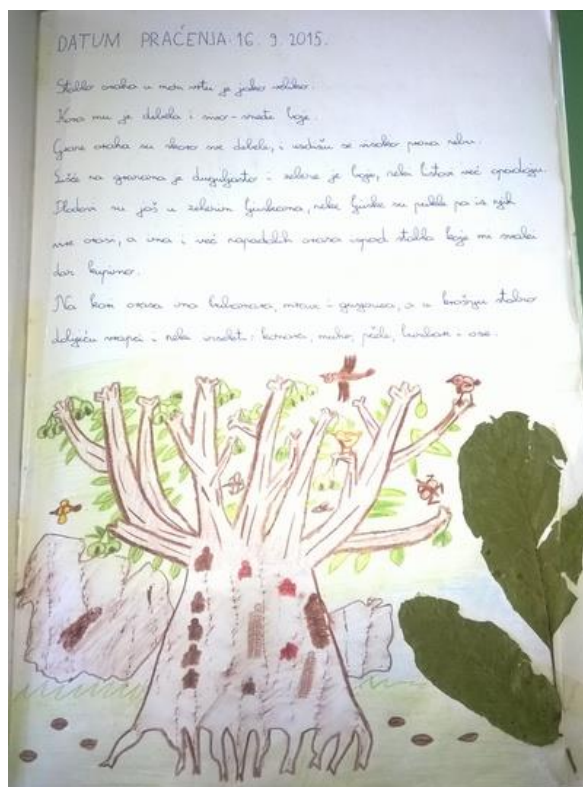 DATUM PRAĆENJA 16. 9. 2015.
Stablo oraha u mom vrtu je jako veliko.
Kora mu je debela i sivo-smeđe boje.
Grane oraha su skoro sve debele, i uzdižu se visoko prema nebu.
Lišće na granama je duguljasto i zelene je boje, neki listovi već opadaju.
Plodovi su još u zelenim ljuskama, neke ljuske su pukle pa iz njih
vire orasi, a ima i već napadalih oraha ispod stabla koje mi svaki
dan kupimo.
Na kori oraha ima bubamara, mrava i gusjenica, a u krošnju stalno
dolijeću vrapci i neki insekti: komarci, muhe, pčele, bumbari i ose.